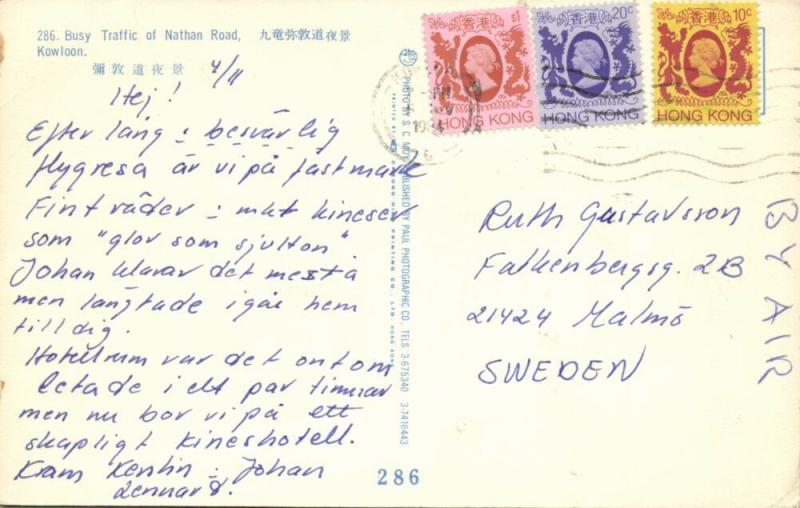 286. Busy Traffic of Nathan Road, 九竜弥敦道夜景
Kowloon.
彌敦道夜景
4/11
Hej!
Efter lång & besvärlig
flygresa är vi på fast mark
Fint väder & mkt kineser
som "glor som sjutton"
Johan klarar det mesta
men längtade igår hem
till dig.
Hotellrum var det ont om
letade i ett par timmar
men nu bor vi på ett
skapligt kineshotell.
Kram Kerstin & Johan
Lennart.
PUBLISHED BY PAUL PHOTOGRAPHIC CO., TELS. 3-675340 3-7416443
PRINTING CO., LTD. HONG KONG
286
香港 $1
HONG KONG
香港 20c
HONG KONG
香港 10c
HONG KONG
Ruth Gustavsson
Falkenbergsg. 2B
21424 Malmö
SWEDEN
BY AIR